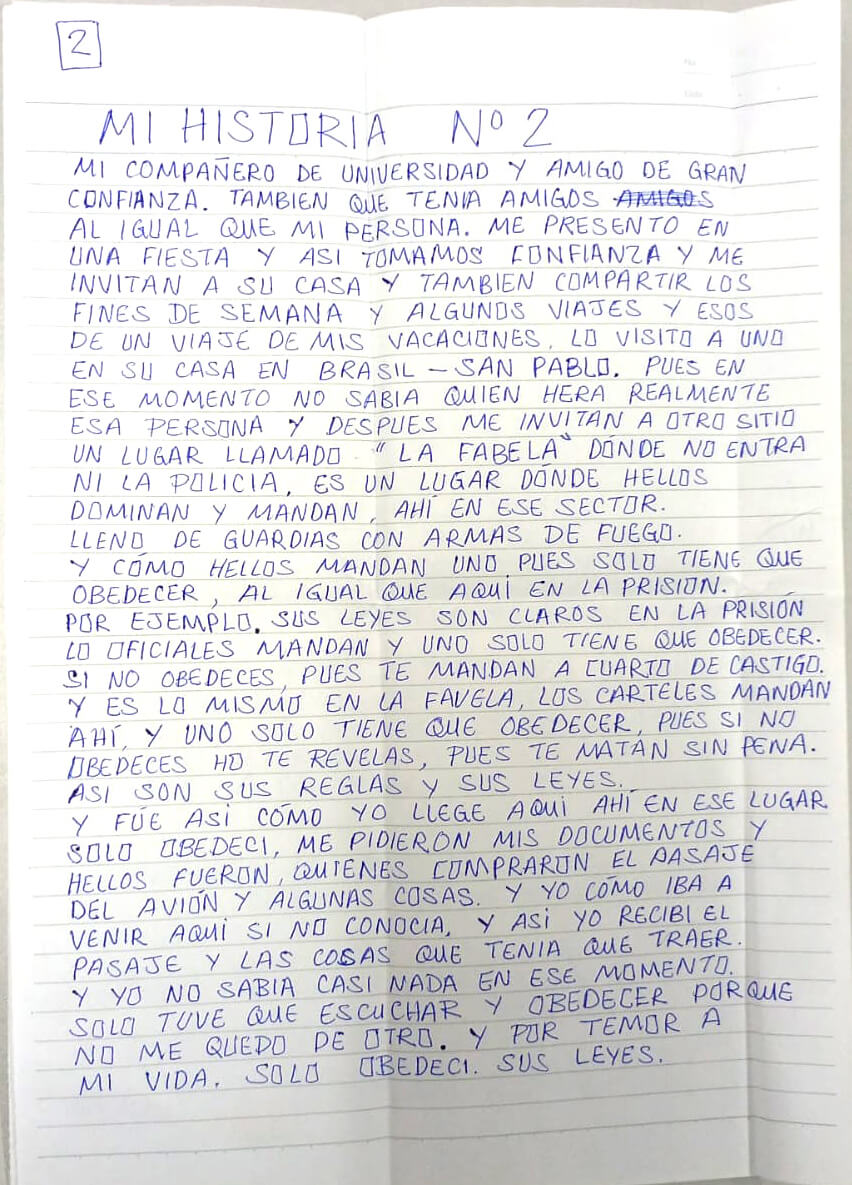 2
MI HISTORIA Nº 2
MI COMPAÑERO DE UNIVERSIDAD Y AMIGO DE GRAN
CONFIANZA. TAMBIEN QUE TENIA AMIGOS AMIGOS
AL IGUAL QUE MI PERSONA. ME PRESENTO EN
UNA FIESTA Y ASI TOMAMOS CONFIANZA Y ME
INVITAN A SU CASA Y TAMBIEN COMPARTIR LOS
FINES DE SEMANA Y ALGUNOS VIAJES Y ESOS
DE UN VIAJE DE MIS VACACIONES. LO VISITO A UNO
EN SU CASA EN BRASIL - SAN PABLO. PUES EN
ESE MOMENTO NO SABIA QUIEN HERA REALMENTE
ESA PERSONA Y DESPUES ME INVITAN A OTRO SITIO
UN LUGAR LLAMADO "LA FABELA" DÓNDE NO ENTRA
NI LA POLICIA, ES UN LUGAR DÓNDE HELLOS
DOMINAN Y MANDAN, AHÍ EN ESE SECTOR.
LLENO DE GUARDIAS CON ARMAS DE FUEGO.
Y CÓMO HELLOS MANDAN UNO PUES SOLO TIENE QUE
OBEDECER, AL IGUAL QUE AQUÍ EN LA PRISION.
POR EJEMPLO. SUS LEYES SON CLAROS EN LA PRISIÓN
LO OFICIALES MANDAN Y UNO SOLO TIENE QUE OBEDECER.
SI NO OBEDECES, PUES TE MANDAN A CUARTO DE CASTIGO.
Y ES LO MISMO EN LA FAVELA, LOS CARTELES MANDAN
AHÍ, Y UNO SOLO TIENE QUE OBEDECER, PUES SI NO
OBEDECES HO TE REVELAS, PUES TE MATAN SIN PENA.
ASI SON SUS REGLAS Y SUS LEYES.
Y FÚE ASI CÓMO YO LLEGE AQUI AHÍ EN ESE LUGAR
SOLO OBEDECI, ME PIDIERON MIS DOCUMENTOS Y
HELLOS FUERON, QUIENES COMPRARON EL PASAJE
DEL AVIÓN Y ALGUNAS COSAS. Y YO CÓMO IBA A
VENIR AQUI SI NO CONOCIA, Y ASI YO RECIBI EL
PASAJE Y LAS COSAS QUE TENIA QUE TRAER.
Y YO NO SABIA CASI NADA EN ESE MOMENTO.
SOLO TUVE QUE ESCUCHAR Y OBEDECER PORQUE
NO ME QUEDO DE OTRO. Y POR TEMOR A
MI VIDA. SOLO OBEDECI. SUS LEYES.